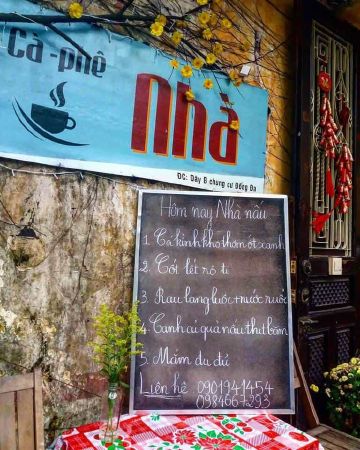 Cà-phê
Nhà
ĐC: Dãy B chung cư Đống Đa
Hôm nay Nhà nấu
1. Cá kình kho thơm ớt xanh
2. Cốt lết rô ti
3. Rau lang luộc + nước ruốc
4. Canh cải quả nấu thịt bằm
5. Mắm đu đủ
Liên hê 0901941454
0984667293